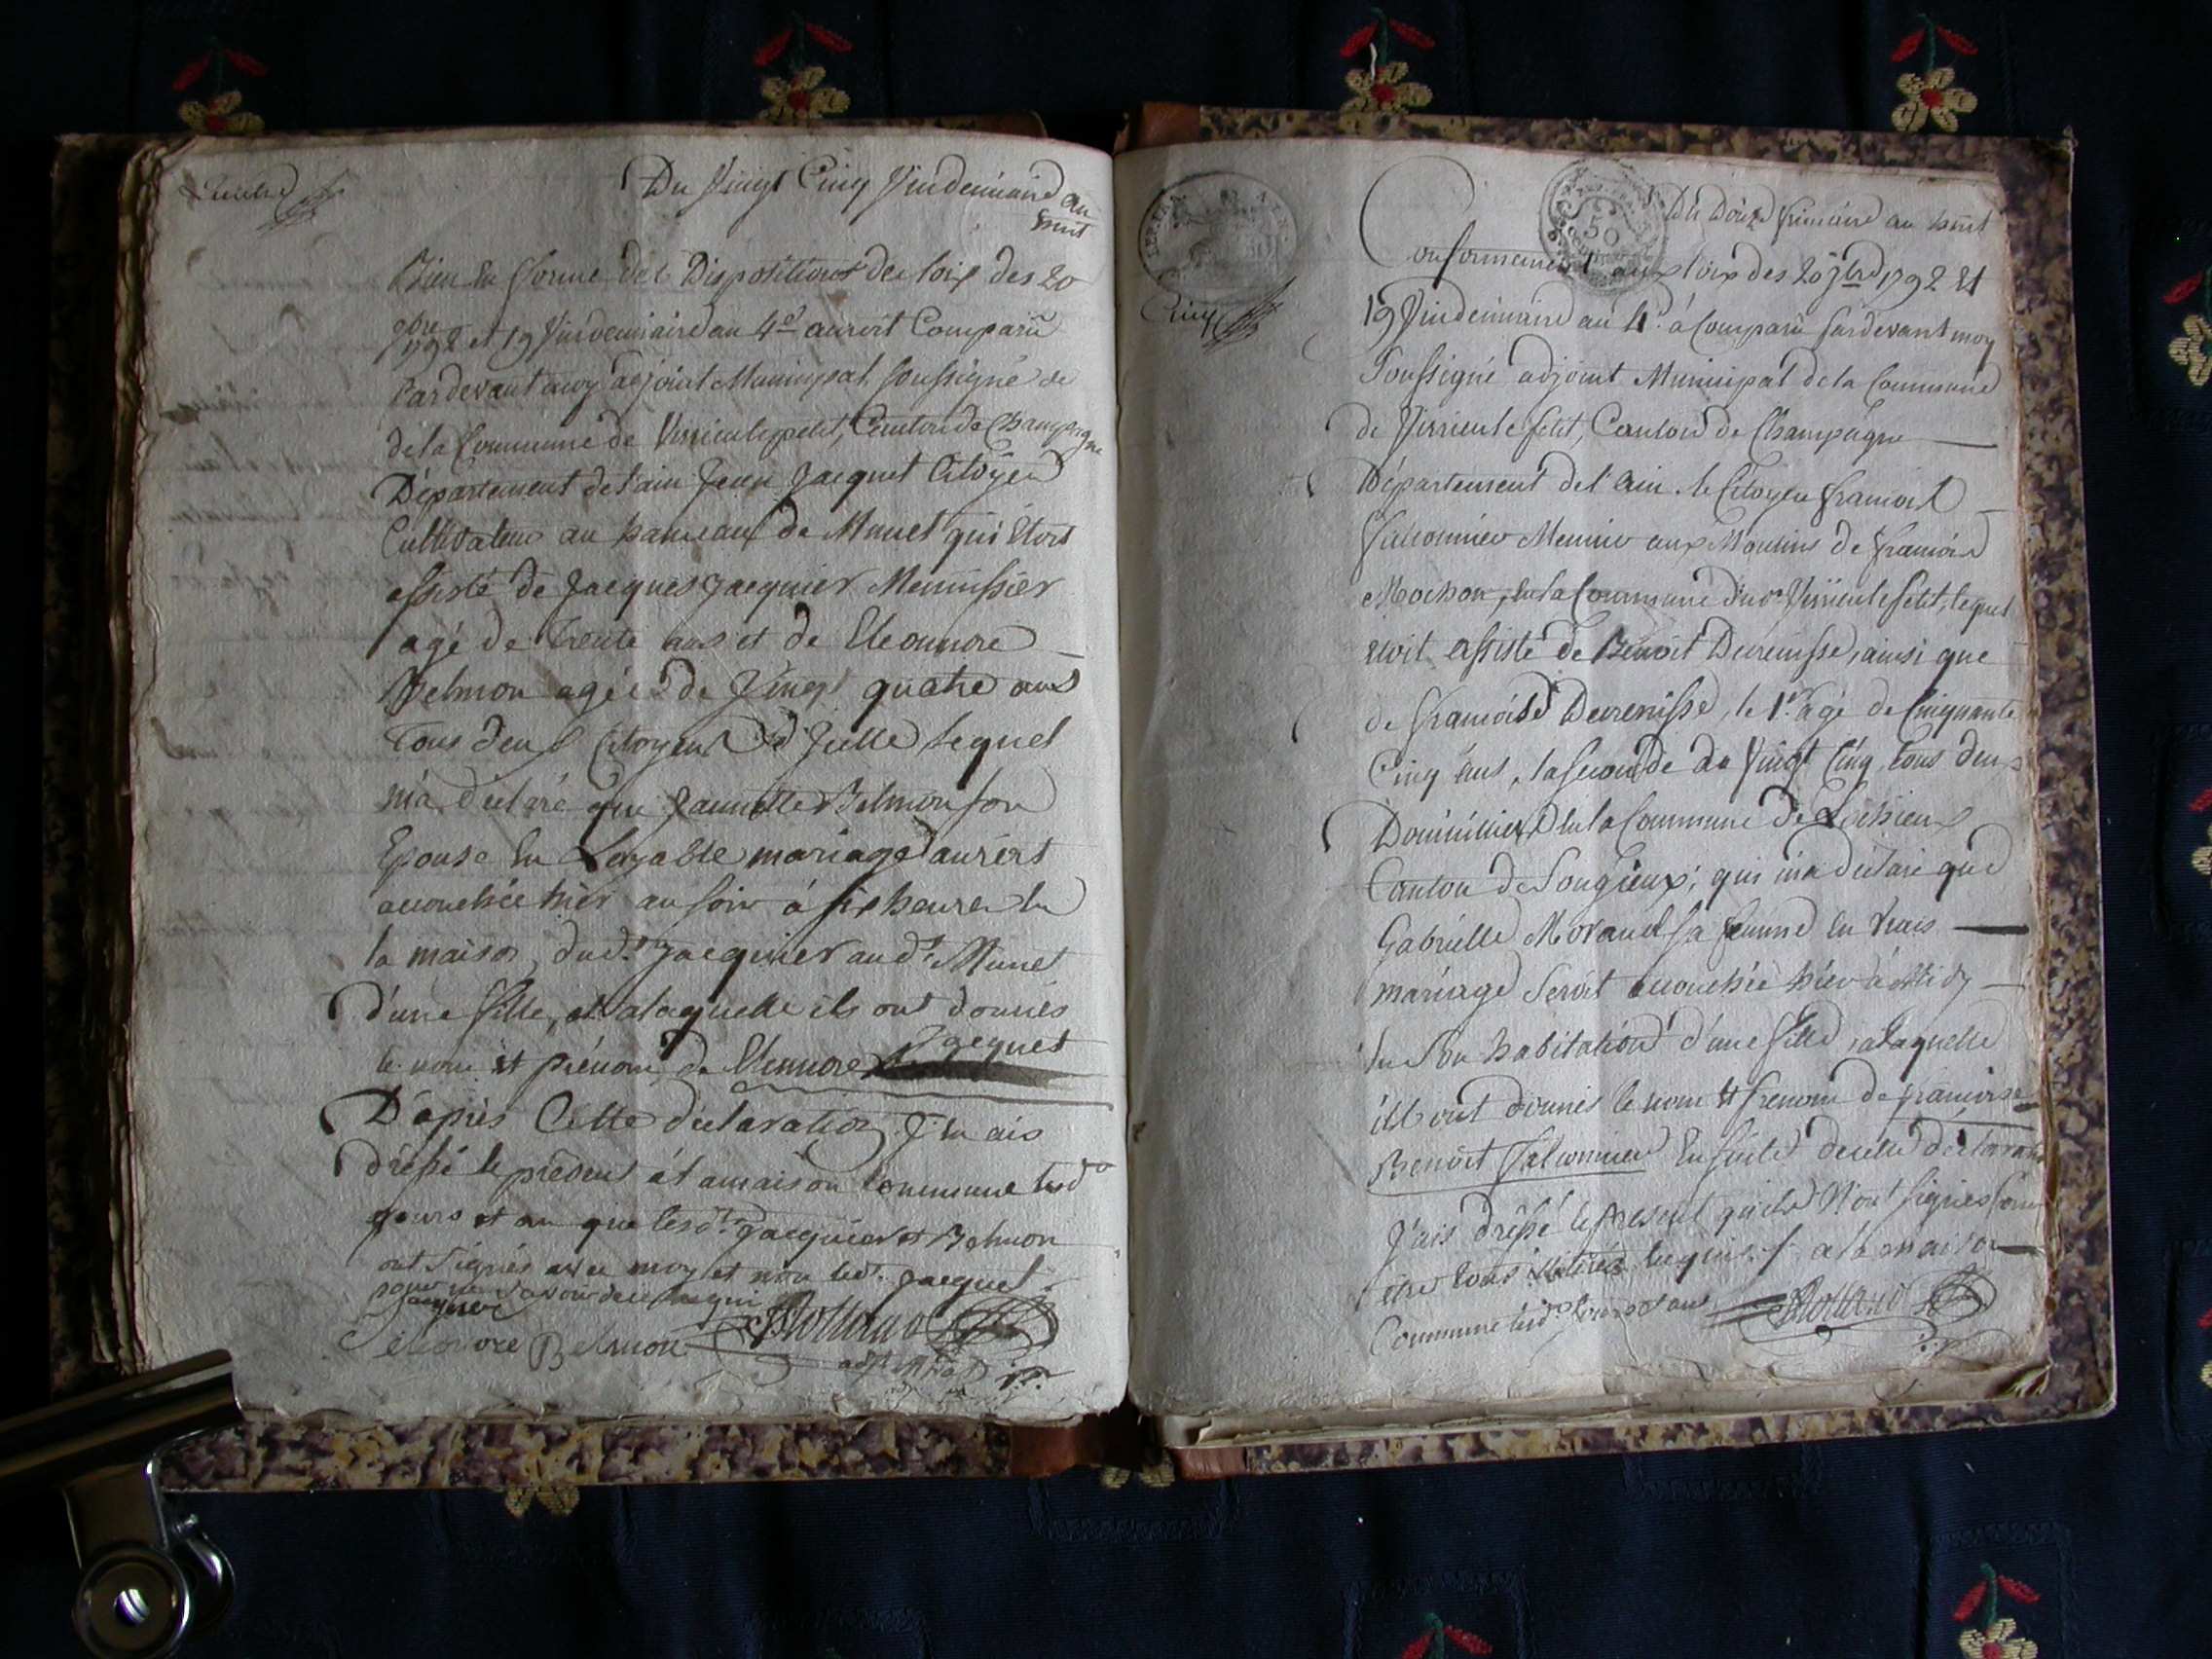 Du Vingt Cinq Vindemiaire an
huit
Bien en forme des Dispositions des loix des 20
7bre
1792 et 19 Vindemiaire an 4e auroit Comparü
Pardevant moy adjoint Municipal soussigné de
de la Commune de Virieulepetit, Canton de Champagne
Département de l'ain Jean Jacquet Citoyen
Cultivateur au hameaux de Munet qui étoit
assisté de Jacques Jacquier Menuissier
agé de trente ans et de Eleonnore
Belmon agée de Vingt quatre ans
Tous deux Citoyens d Lequel
m'a déclaré que Jannette Belmon son
Epouse en Loyable mariage aurèrt
accouchée hièr au soir á six heures en
la maison dud.t Jacquier aud.t Munet
d'une fille, et alaquelle ils ont donnés
Jacquet
le nom et prénom de Elennore
D'après Cette déclaration J'en ais
dréssé le présent á la maison Commune lesd
jours et an que lesd.ts Jacquier et Belmon
ont signés avec moy et non led.t Jacquet
pour ne savoir de ce requi
Jacquier
éléonore Belmon Rolland
Cinq
Du Douze frimaire an huit
50
Conformement aux loix des 20 7bre 1792 et
19 Vindemiaire an 4e á Comparü Pardevant moy
Soussigné adjoint Municipal de la Commune
de Virieulepetit, Canton de Champagne
Département de l'ain. le Citoyen francois
falconnier Meunier aux Moulins de francois
Mochon, en la Commune dud.t Virieulepetit, lequel
étoit assisté de Benoit Devenisse, ainsi que
de francoise Devenisse, le 1er agé de Cinquante
Cinq ans, la seconde de Vingt Cinq, tous deux
Domicilliers en la Commune de Lochieux
Canton de Songieux, qui m'a déclaré que
Gabrielle Morand sa femme en vrais
mariage Seroit accouchée hiér á Midy
en son habitation d'une fille, alaquelle
ils ont donnés le nom et prenom de francoise
Benoit falconnier Ensuite de cette déclaration
J'ais dréssé le présent qu'ils n'ont signés pour
être tous illitérés requis. f. a la maison
Commune lesd. jours et ans Rolland